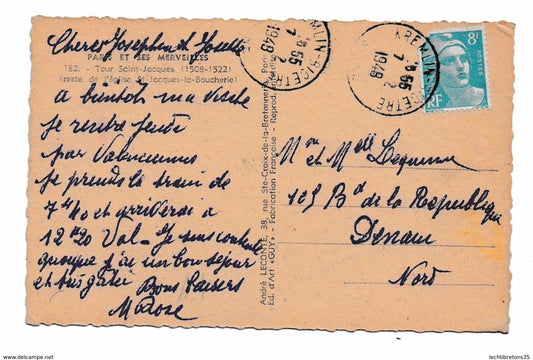 Cheres Josephe et Josette
PARIS ET SES MERVEILLES
182. - Tour Saint-Jacques (1508-1522)
(reste de l'église St-Jacques-la-Boucherie)
A bientôt ma visite
je rentre jeudi
par Valenciennes
je prends le train de
7 40 et arriverai a
12 20 Val - Je suis contente
j'ai un bon séjour
et très gatée
Bons baisers
M Rose
André LECONTE, 38, rue Ste-Croix-de-la-Bretonnerie, Paris
Ed. d'Art «GUY» - Fabrication Française - Reprod. Interdite
KREMLIN-BICETRE
1948
KREMLIN BICETRE
1948
8F
POSTES
RF
Mme et Melle Lequenne
105 Bd de la Republique
Denain
Nord
lechtbretons35